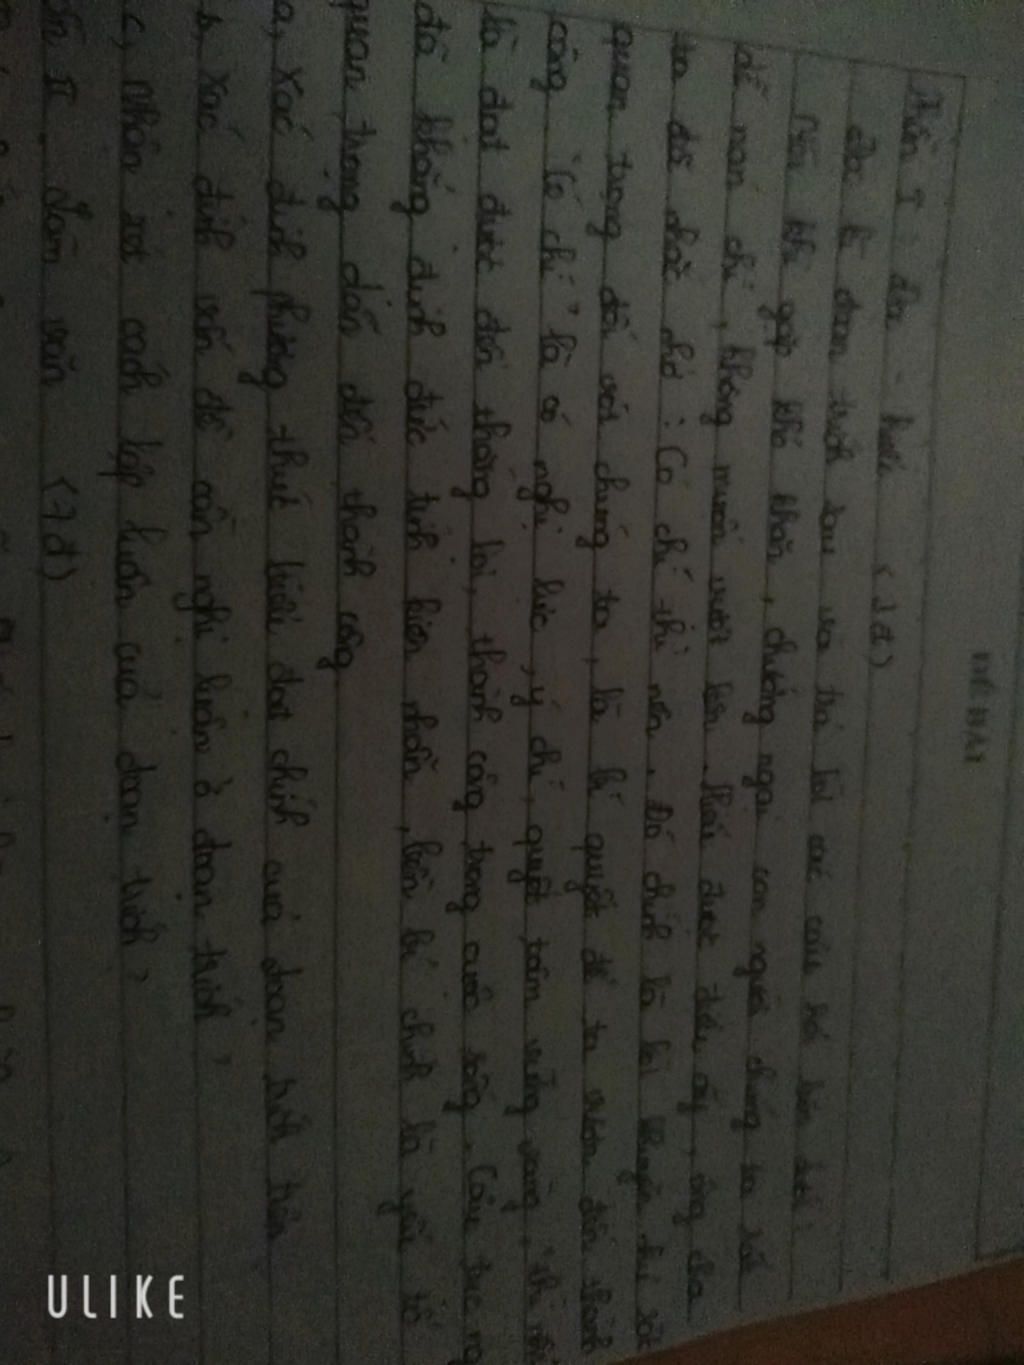 ĐỀ BÀI
Phần I: Đọc - hiểu (3đ)
Đọc kĩ đoạn trích sau và trả lời các câu hỏi bên dưới:
Mỗi khi gặp khó khăn, chướng ngại con người chúng ta rất
dễ nản chí, không muốn vượt lên. Hiểu được điều ấy, ông cha
ta đã nhắc nhở: Có chí thì nên. Đó chính là lời khuyên hết sức
quan trọng đối với chúng ta, là bí quyết để ta vươn đến thành
công "Có chí" là có nghị lực, ý chí, quyết tâm vững vàng, "thì nên"
là đạt được đến thắng lợi, thành công trong cuộc sống. Câu tục ng
đã khẳng định đức tính kiên nhẫn, bền bỉ chính là yếu tố
quan trọng dẫn đến thành công
a, Xác định phương thức biểu đạt chính của đoạn trích trên
b, Xác định vấn đề cần nghị luận ở đoạn trích?
c, Nhận xét cách lập luận của đoạn trích?
ần II. Làm văn (7đ)
ULIKE